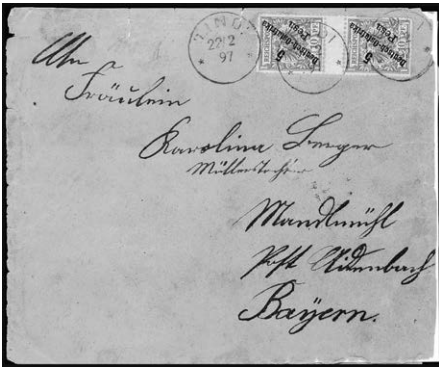 LINDI
22/12
97
Deutsch-Ostafrika
Pesa 5
Deutsch-Ostafrika
Pesa 5
An
Fräulein
Karolina Berger
Müllerstochter
Mandlmühl
Post Aidenbach
Bayern.